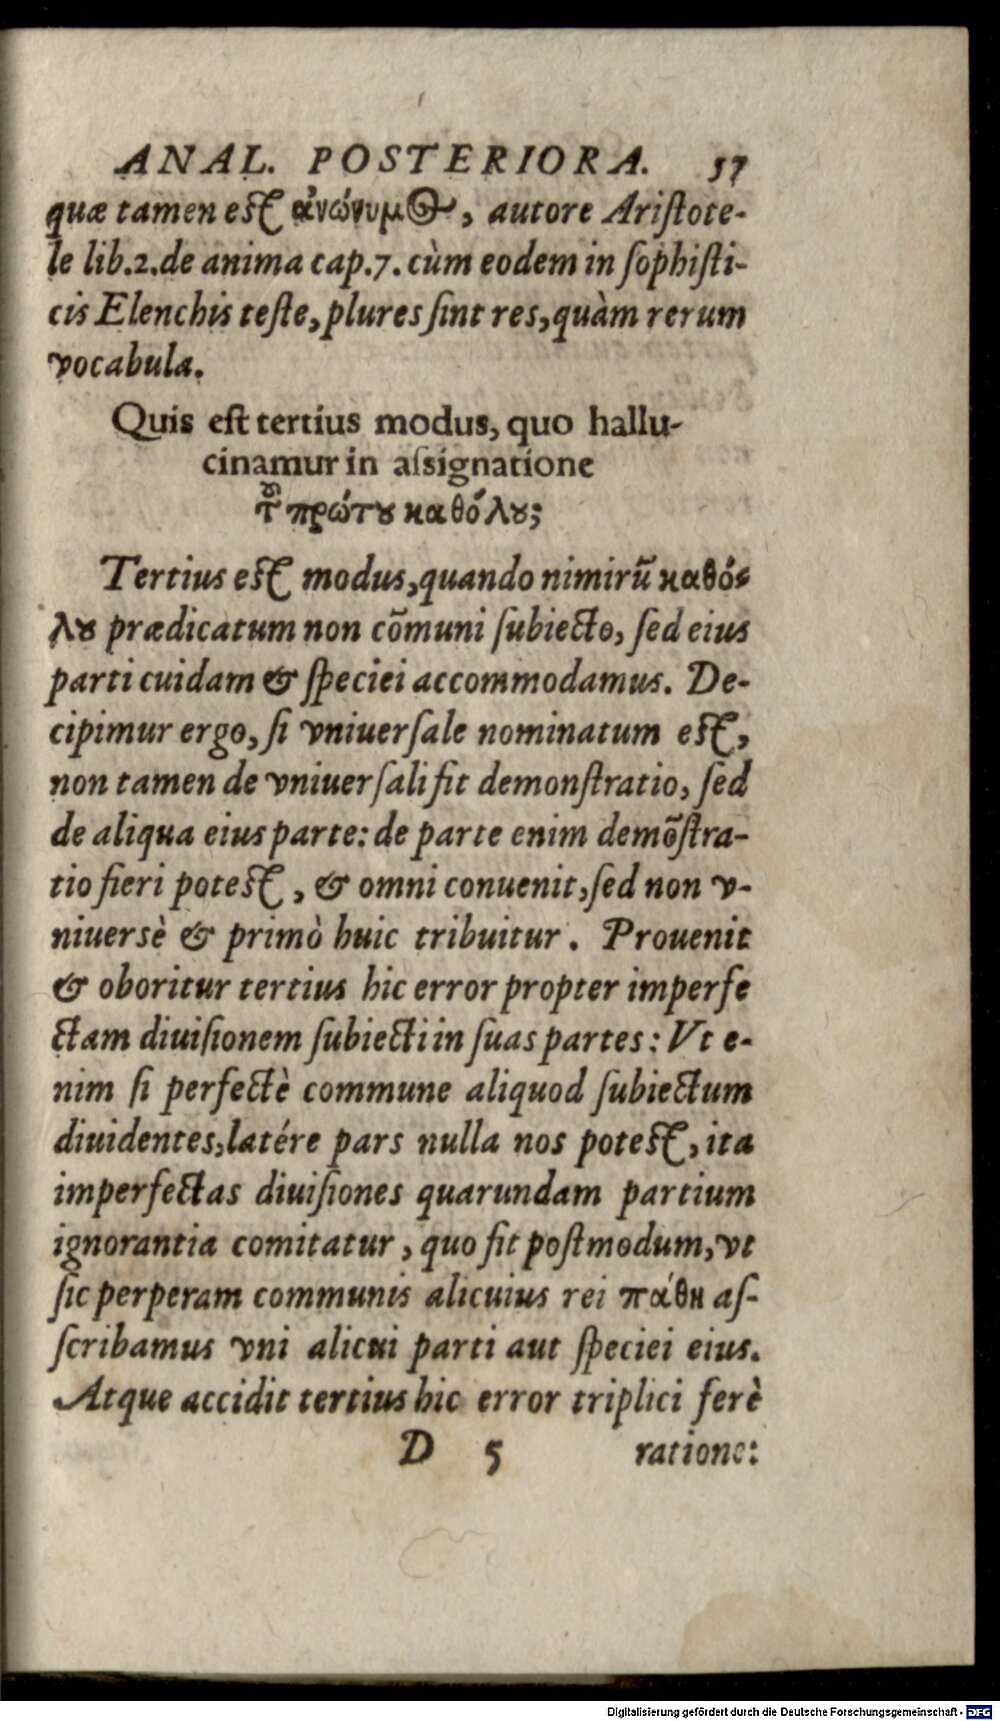 ANAL. POSTERIORA. 57
quæ tamen est ἀνώνυμος, autore Aristote-
le lib.2.de anima cap.7. cùm eodem in ſophiſti-
cis Elenchis teſte, plures ſint res, quàm rerum
vocabula.
Quis eſt tertius modus, quo hallu-
cinamur in aſsignatione
τοῦ πρώτου καθόλου;
Tertius est modus, quando nimirũ καθό-
λου prædicatum non cõmuni ſubiecto, ſed eius
parti cuidam & ſpeciei accommodamus. De-
cipimur ergo, ſi vniuerſale nominatum est,
non tamen de vniuerſali fit demonſtratio, ſed
de aliqua eius parte: de parte enim demõſtra-
tio fieri potest, & omni conuenit, ſed non v-
niuersè & primò huic tribuitur. Prouenit
& oboritur tertius hic error propter imperfe
ctam diuiſionem ſubiecti in ſuas partes: Vt e-
nim ſi perfectè commune aliquod ſubiectum
diuidentes, latére pars nulla nos potest, ita
imperfectas diuiſiones quarundam partium
ignorantia comitatur, quo fit poſtmodum, vt
ſic perperam communis alicuius rei πάθη aſ-
ſcribamus vni alicui parti aut ſpeciei eius.
Atque accidit tertius hic error triplici ferè
D 5 ratione:
Digitalisierung gefördert durch die Deutsche Forschungsgemeinschaft - DFG